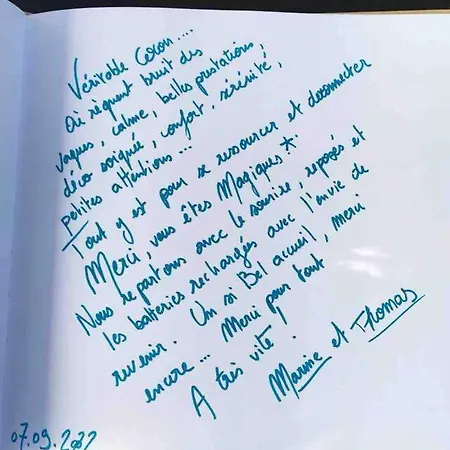 Véritable Cocon....
Où règnent bruit des
vagues, calme, belles prestations,
déco soignée, confort, sérénité,
petites attentions...
Tout y est pour se ressourcer et déconnecter
Merci, vous êtes Magiques*.
Nous repartons avec le sourire, reposés et
les batteries rechargées avec l'envie de
revenir. Un si Bel accueil, merci
encore... Merci pour tout
A très vite !
Marine et Thomas
07.09.2022